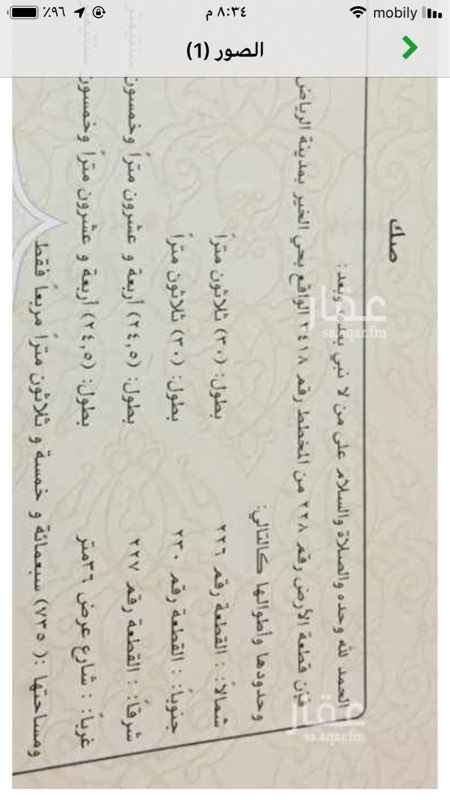 mobily
٨:٣٤ م
٪٩٦
الصور (1)
صك
الحمد لله وحده والصلاة والسلام على من لا نبي بعده وبعد:
فإن قطعة الأرض رقم ٢٢٨ من المخطط رقم ٣٤١٨ الواقع بحي الخير بمدينة الرياض
وحدودها وأطوالها كالتالي:
شمالاً: : القطعة رقم ٢٢٦ بطول: (٣٠) ثلاثون متراً
جنوباً: : القطعة رقم ٢٣٠ بطول: (٣٠) ثلاثون متراً
شرقاً: : القطعة رقم ٢٢٧ بطول: (٢٤,٥) أربعة و عشرون متراً وخمسون سنتيمتر
غرباً: : شارع عرض ٣٦متر بطول: (٢٤,٥) أربعة و عشرون متراً وخمسون
ومساحتها :( ٧٣٥) سبعمائة و خمسة و ثلاثون متراً مربعاً فقط
عقار
sa.aqar.fm
عقار
sa.aqar.fm